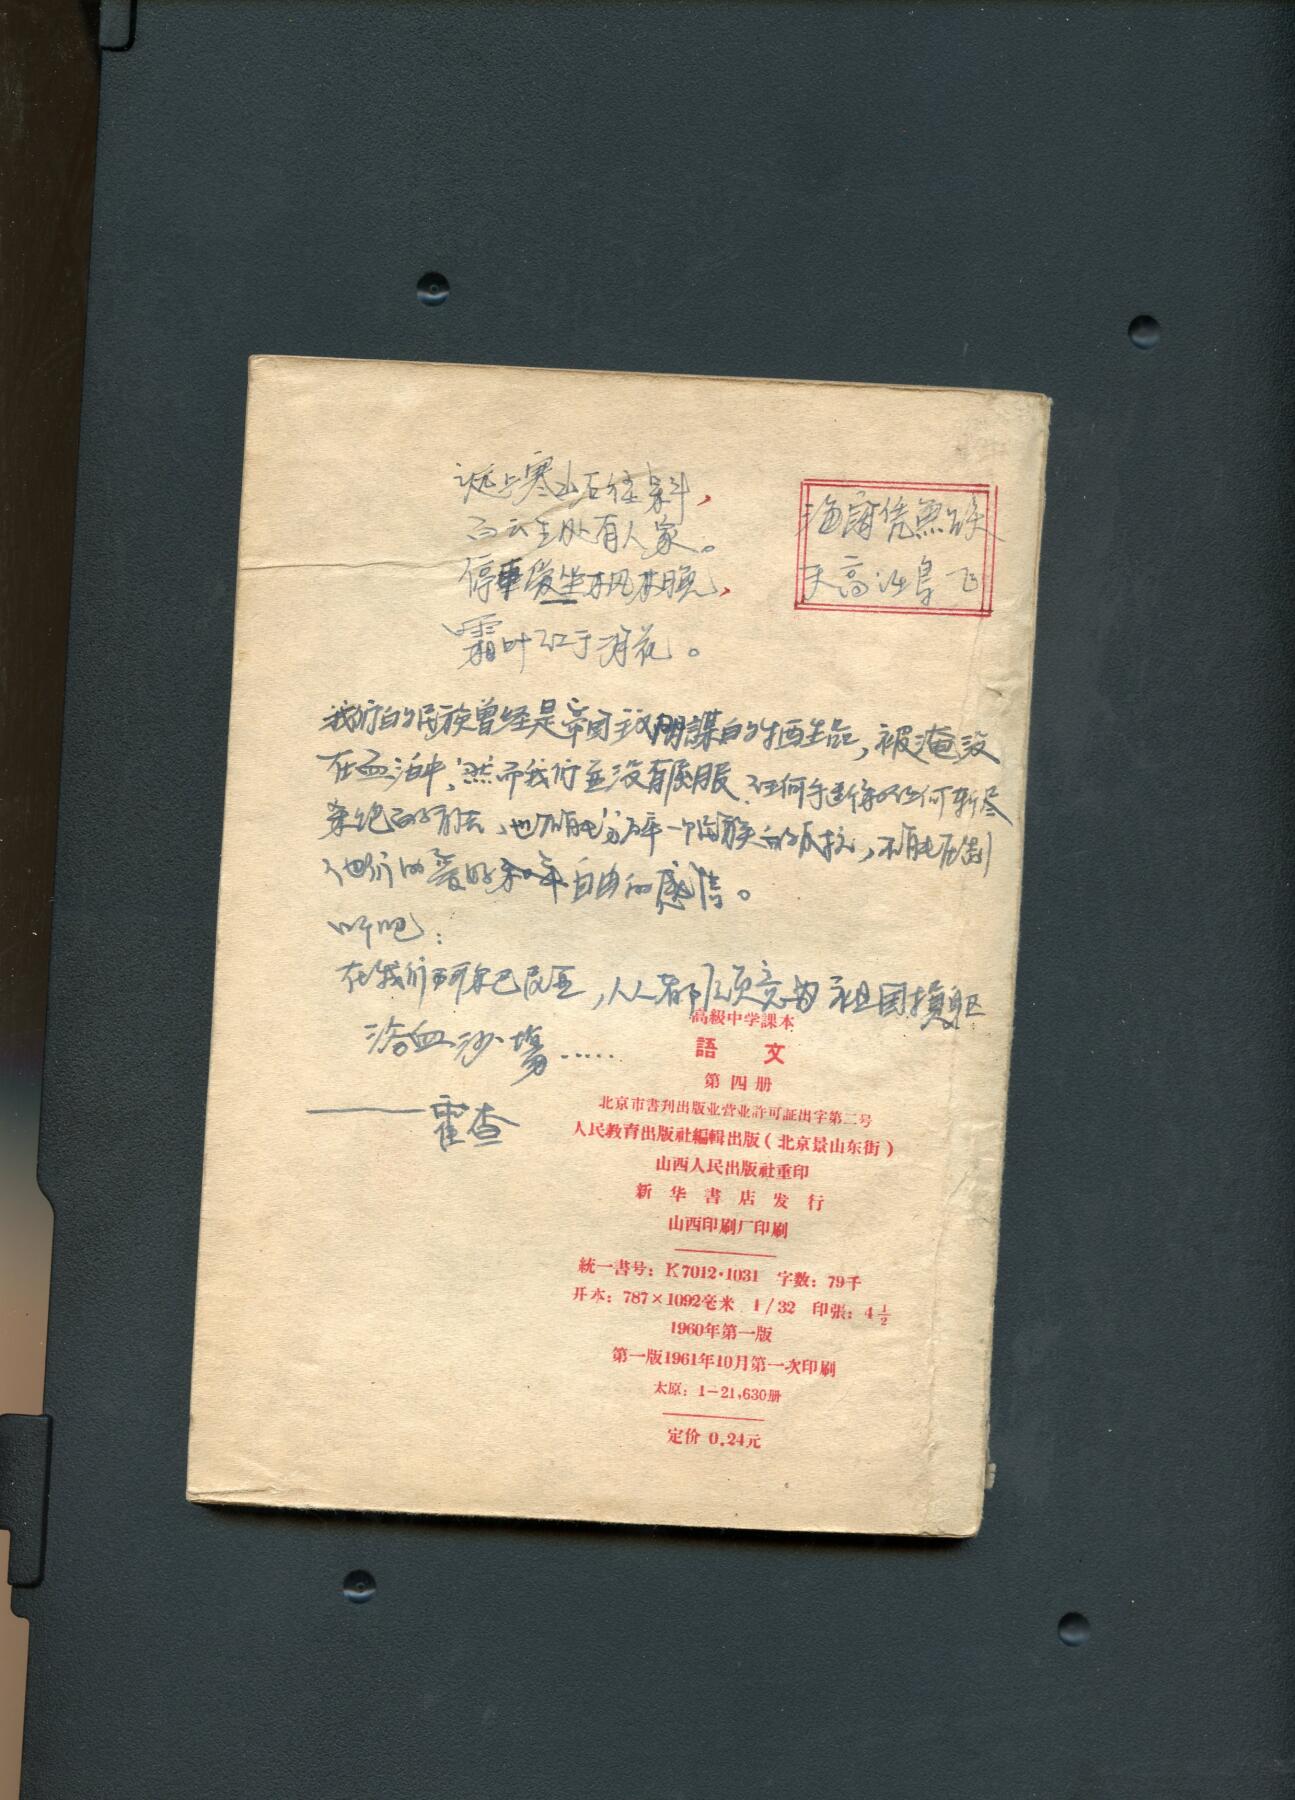 远上寒山石径斜,
白云生处有人家。
停車爱坐枫林晚,
霜叶红于 花。
海阔凭魚跃
天高任鳥飞
我们的民族曾经是帝国主义阴謀的牺牲品,被淹没
在血泊中,然而我们並没有屈服,任何手 任何斩尽
杀绝的 法,也不能 一个民族的反抗,不能压制
他们的爱好和平自由的感情。
听吧:
在我们阿尔巴尼亚,人人都愿意为祖国捐躯
浴血沙場……
——霍查
高級中学課本
語 文
第四册
北京市書刊出版业营业許可証出字第二号
人民教育出版社編輯出版(北京景山东街)
山西人民出版社重印
新华書店发行
山西印刷厂印刷
統一書号:K7012·1031 字数:79千
开本:787×1092毫米 1/32 印張:4 1/2
1960年第一版
第一版1961年10月第一次印刷
太原:1—21,630册
定价 0.24元